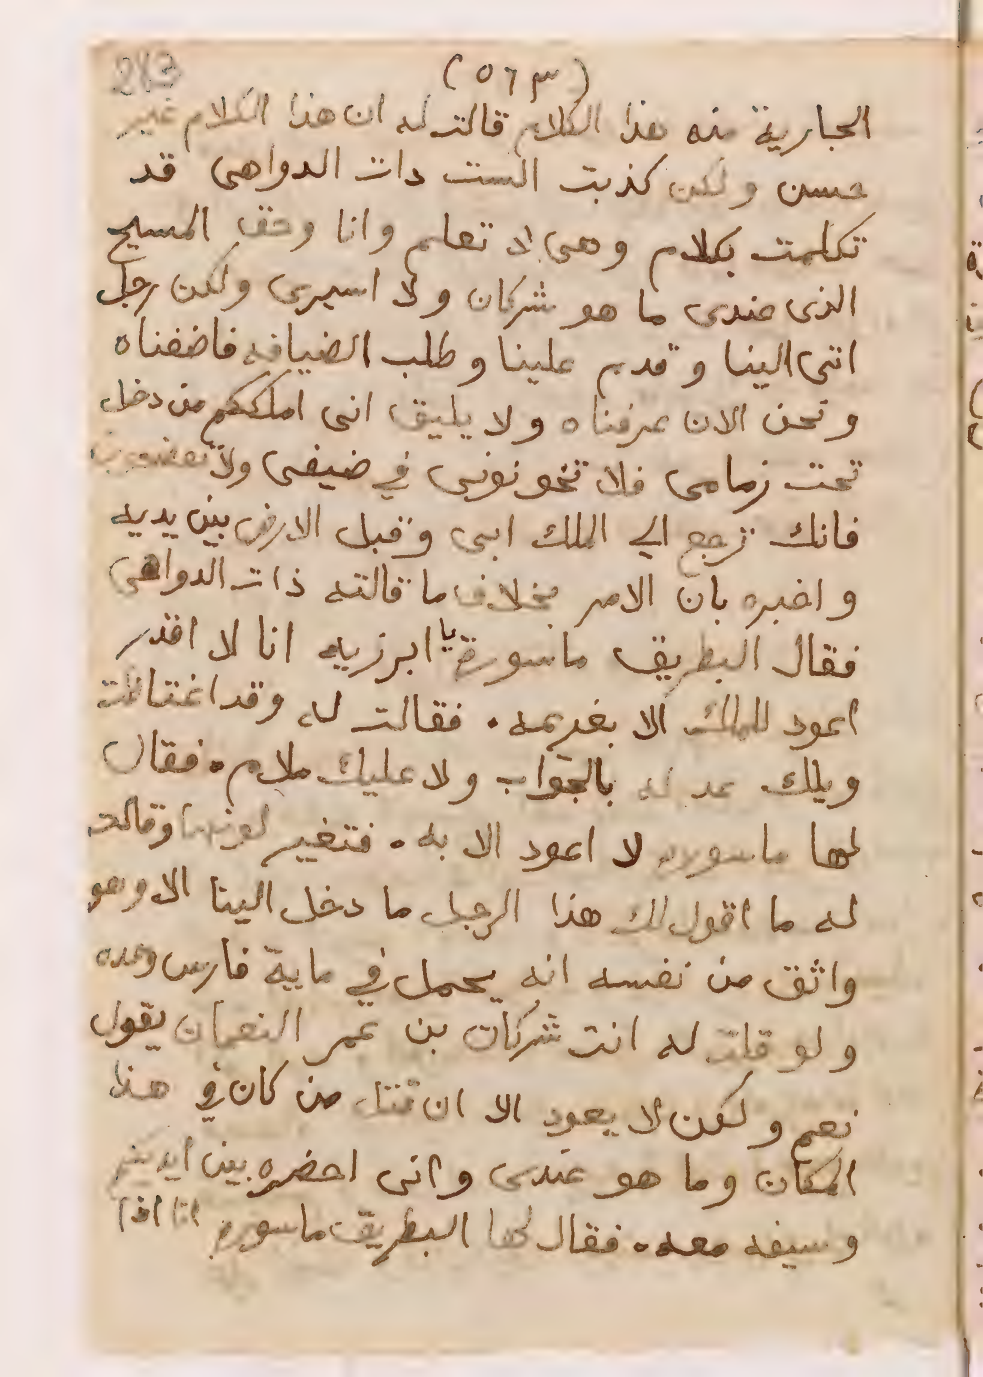 283 (٥٦٣)
الجارية منه هذا الكلام قالت له ان هذا الكلام غير
حسن ولكن كذبت الست دات الدواهى قد
تكلمت بكلام وهى لا تعلم وانا وحق المسيح
الذى عندى ما هو شركان ولا اسيرى ولكن رجل
اتى الينا و قدم علينا و طلب الضيافه فاضفناه
و نحن الان عرفناه و لا يليق انى املككم من دخل
تحت زمامى فلا تخونونى في ضيفى ولا
فانك ترجع الي الملك ابى وقبل الارض بين يديه
و اخبره بان الامر بخلاف ما قالته ذات الدواهى
فقال البطريق ماسورة يا ابرزيه انا لا اقدر
اعود للملك الا بغريمه ٠ فقالت له وقد اغتاظت
ويلك عد له بالجواب ولا عليك ملام ٠ فقال
لها ماسوره لا اعود الا به ٠ فتغير لونها وقالت
له ما اقول لك هذا الرجل ما دخل الينا الا وهو
واثق من نفسه انه يحمل في ماية فارس وحده
و لو قلت له انت شركان بن عمر النعمان يقول
نعم و لكن لا يعود الا ان قتل من كان في هذا
المكان وما هو عندى وانى احضره بين
و سيفه معه ٠ فقال لها البطريق ماسوره انا اذا